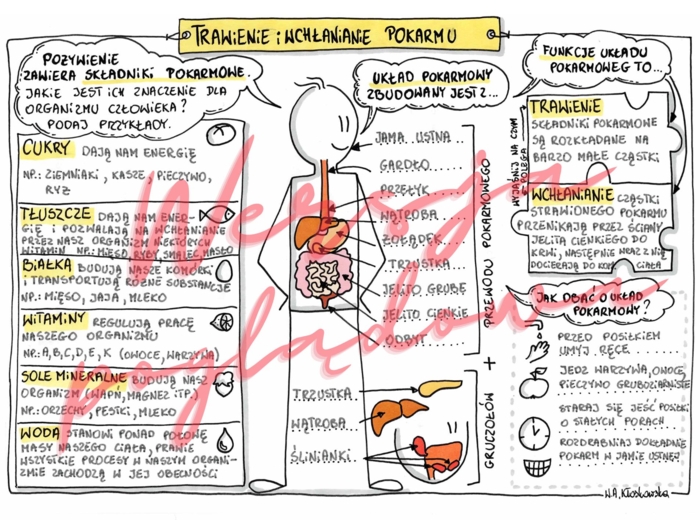 TRAWIENIE i WCHŁANIANIE POKARMU
POŻYWIENIE
ZAWIERA SKŁADNIKI POKARMOWE.
JAKIE JEST ICH ZNACZENIE DLA
ORGANIZMU CZŁOWIEKA?
PODAJ PRZYKŁADY.
CUKRY DAJĄ NAM ENERGIĘ
NP.: ZIEMNIAKI, KASZE, PIECZYWO,
RYŻ
TŁUSZCZE DAJĄ NAM ENER-
GIĘ I POZWALAJĄ NA WCHŁANIANIE
PRZEZ NASZ ORGANIZM NIEKTÓRYCH
WITAMIN NP.: MIĘSO, RYBY SMALEC, MASŁO
BIAŁKA BUDUJĄ NASZE KOMÓRKI
I TRANSPORTUJĄ RÓŻNE SUBSTANCJE
NP.: MIĘSO, JAJA, MLEKO
WITAMINY REGULUJĄ PRACĘ
NASZEGO ORGANIZMU
NP.: A, B, C, D, E, K (OWOCE, WARZYWA)
SOLE MINERALNE BUDUJĄ NASZ
ORGANIZM (WAPŃ, MAGNEZ ITP.)
NP.: ORZECHY, PESTKI, MLEKO
WODA STANOWI PONAD POŁOWĘ
MASY NASZEGO CIAŁA, PRAWIE
WSZYSTKIE PROCESY W NASZYM ORGANI-
ZMIE ZACHODZĄ W JEJ OBECNOŚCI
UKŁAD POKARMOWY
ZBUDOWANY JEST Z...
JAMA USTNA
GARDŁO
PRZEŁYK
WĄTROBA
ŻOŁĄDEK
TRZUSTKA
JELITO GRUBE
JELITO CIENKIE
ODBYT
PRZEWODU POKARMOWEGO
+
GRUCZOŁÓW
TRZUSTKA
WĄTROBA
ŚLINIANKI
FUNKCJE UKŁADU
POKARMOWEG TO...
WYJAŚNIJ NA CZYM
POLEGA
TRAWIENIE
SKŁADNIKI POKARMOWE
SĄ ROZKŁADANE NA
BARZO MAŁE CZĄSTKI
WCHŁANIANIE CZĄSTKI
STRAWIONEGO POKARMU
PRZENIKAJĄ PRZEZ ŚCIANY
JELITA CIENKIEGO DO
KRWI, NASTĘPNIE WRAZ Z NIĄ
DOCIERAJĄ DO KOM. CIAŁA
JAK DBAĆ O UKŁAD
POKARMOWY?
PRZED POSIŁKIEM
UMYJ RĘCE
JEDZ WARZYWA, OWOCE,
PIECZYWO GRUBOZIARNISTE
STARAJ SIĘ JEŚĆ POSIŁKI
O STAŁYCH PORACH
ROZDRABNIAJ DOKŁADNIE
POKARM W JAMIE USTNEJ
N.A. Kłoskowska
Wersja
poglądowa